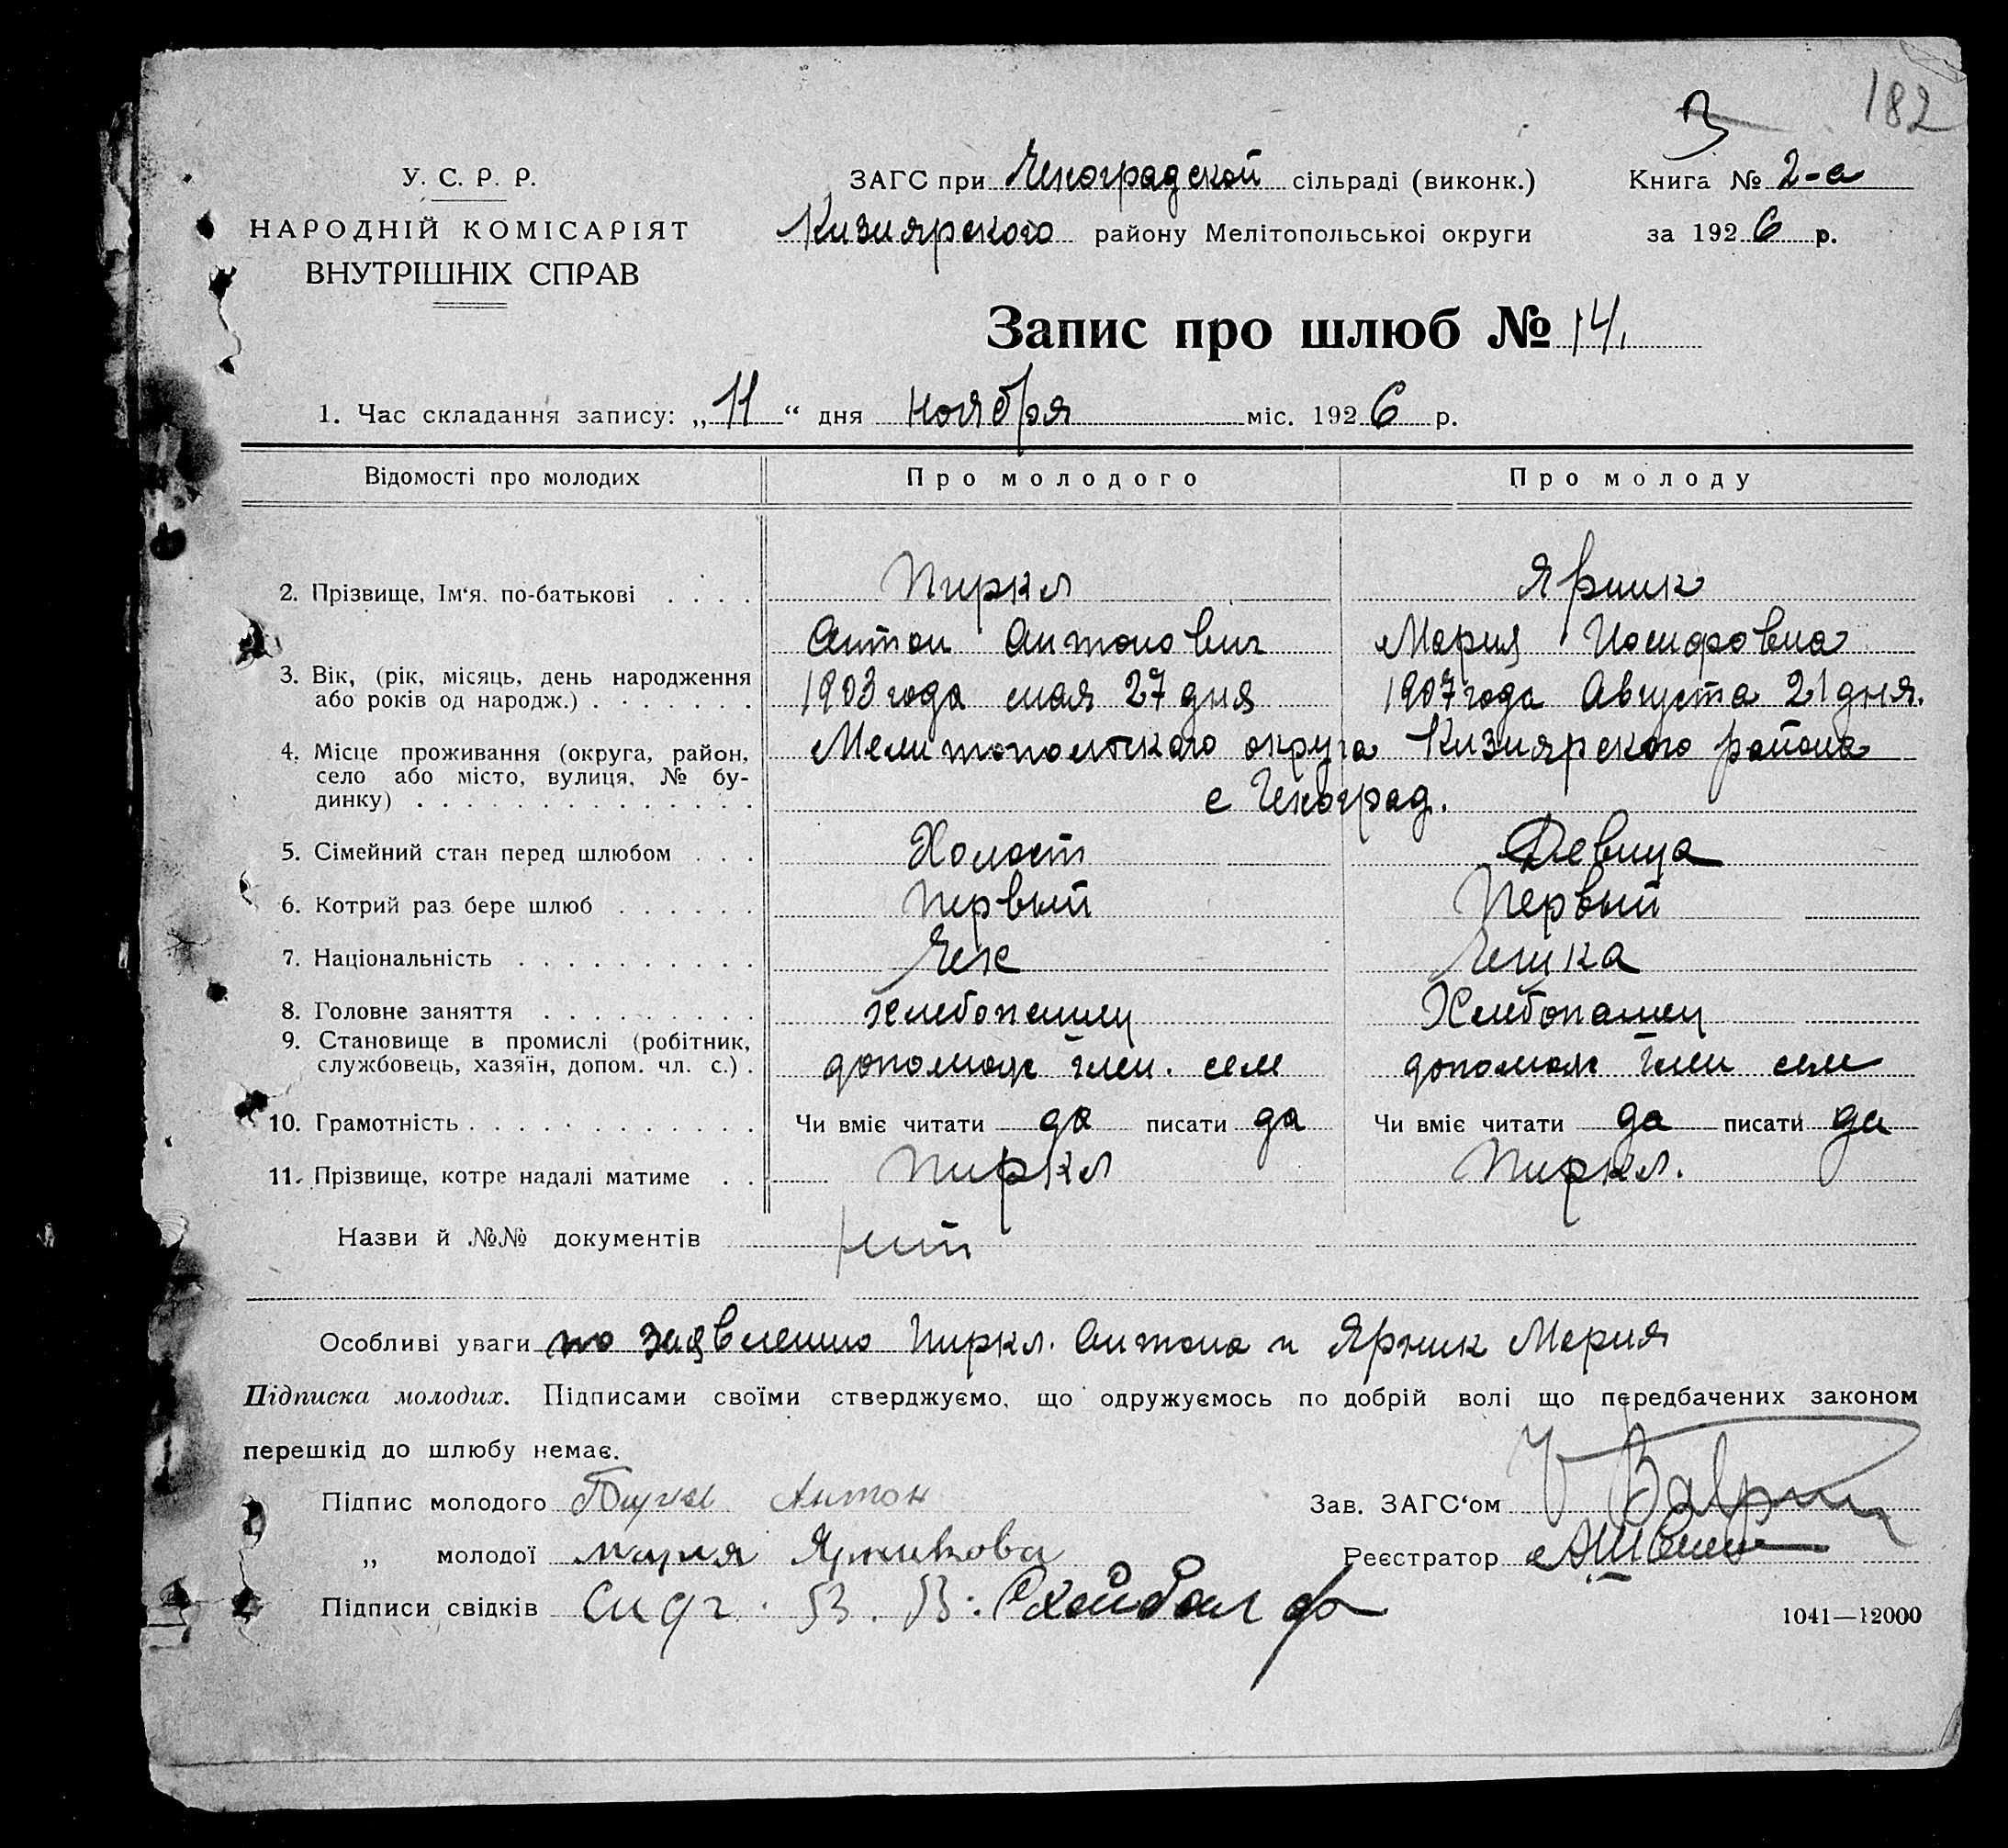 182
З
У. С. Р. Р.
НАРОДНІЙ КОМІСАРІЯТ
ВНУТРІШНІХ СПРАВ
ЗАГС при Чехоградской сільраді (виконк.)
Кизиярского району Мелітопольської округи
Книга № 2-а
за 1926 р.
Запис про шлюб № 14.
1. Час складання запису: „11“ дня ноября міс. 1926 р.
Відомості про молодих Про молодого Про молоду
2. Прізвище, Ім‘я. по-батькові Пиркл Яржик
Антон Антонович Мария Иосифовна
3. Вік, (рік, місяць, день народження
або років од народж.) 1903 года мая 27 дня 1907 года Августа 21 дня.
4. Місце проживання (округа, район,
село або місто, вулиця, № бу-
динку) Мелитопольского округа Кизиярского района
с Чехоград.
5. Сімейний стан перед шлюбом Холост Девица
6. Котрий раз бере шлюб Первый Первый
7. Національність Чех Чешка
8. Головне заняття хлебопашец Хлебопашец
9. Становище в промислі (робітник,
службовець, хазяїн, допом. чл. с.) допомож член. сем допомож член сем
10. Грамотність Чи вміє читати да писати да Чи вміє читати да писати да
11. Прізвище, котре надалі матиме Пиркл Пиркл.
Назви й №№ документів нет
Особливі уваги по заявлению Пиркл. Антона и Яржик Мария
Підписка молодих. Підписами своїми стверджуємо, що одружуємось по добрій волі що передбачених законом
перешкід до шлюбу немає.
Підпис молодого Антон
Зав. ЗАГС‘ом
„ молодої Мария Яржикова
Реєстратор
Підписи свідків
1041—12000